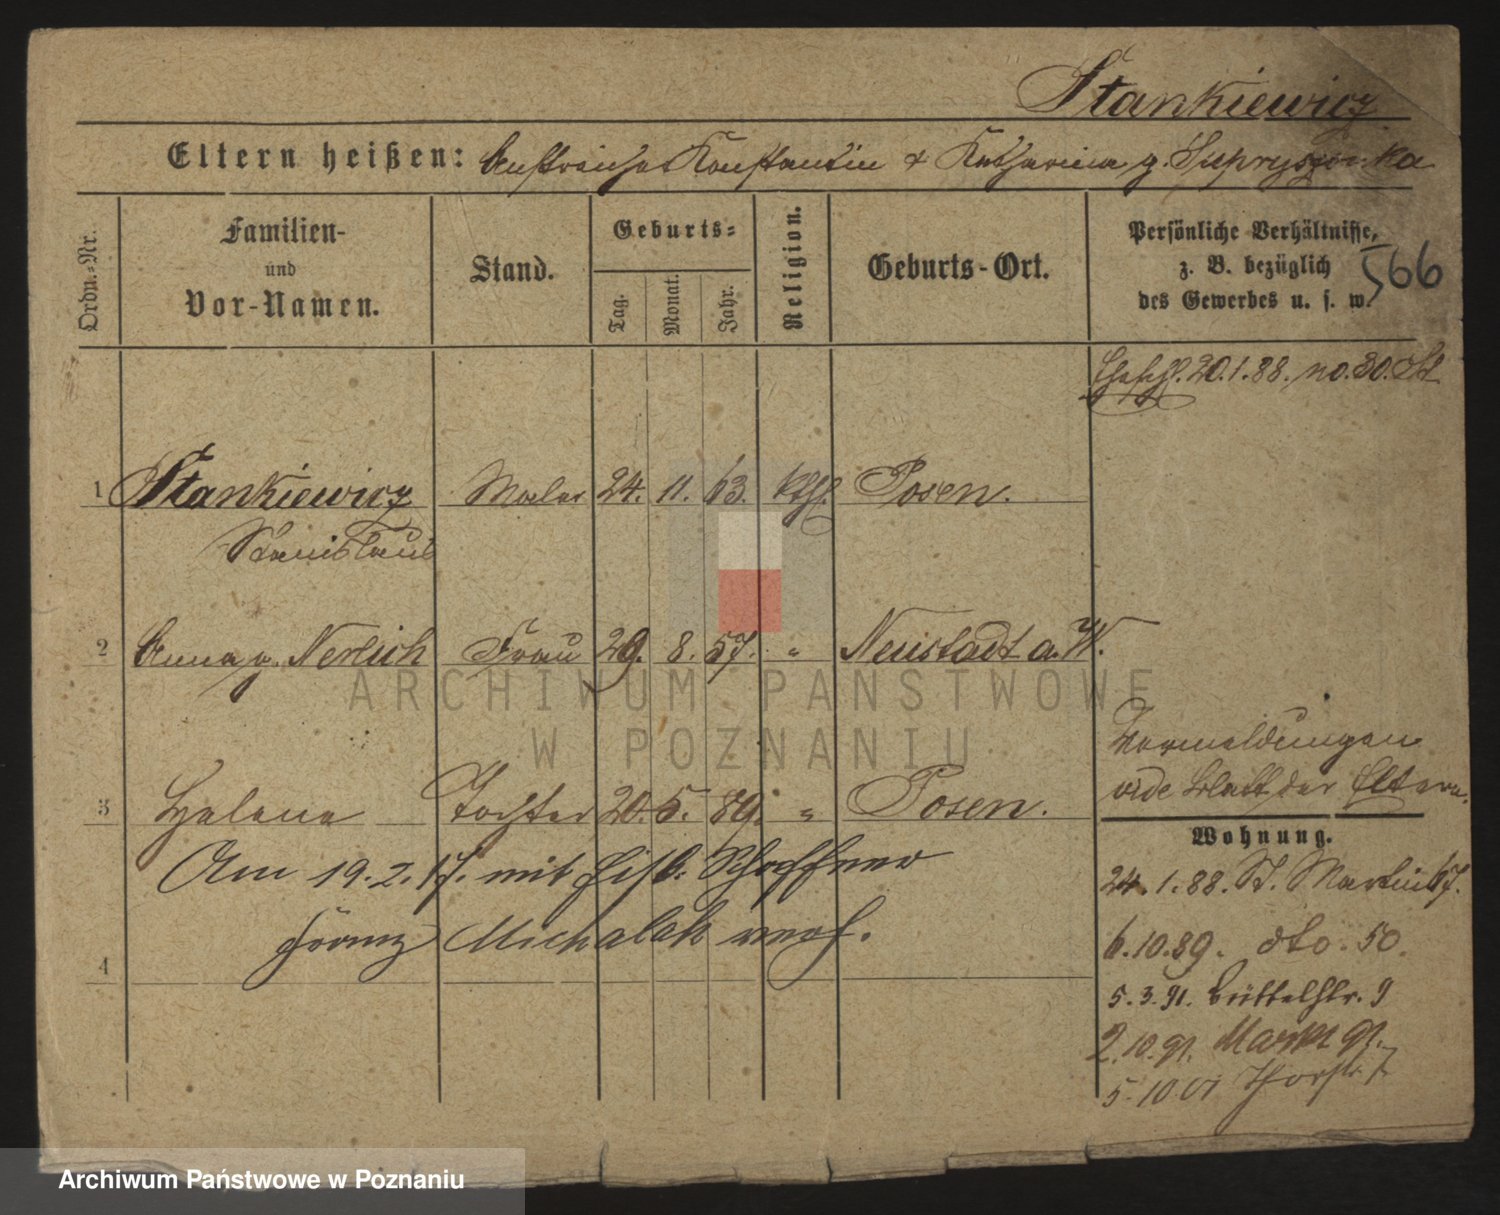 Stankiewicz
Eltern heißen: Anstreicher Konstantin & Katharina g. Supryszinka
Ordn.-Nr.
Familien-
und
Vor-Namen.
Stand.
Geburts-
Tag.
Monat.
Jahr.
Religion.
Geburts-Ort.
Persönliche Verhältnisse,
z. B. bezüglich
des Gewerbes u. s. w.
566
Eheschl. 20.1.88. no. 30.
1 Stankiewicz Maler 24. 11. 63. kthl. Posen.
Stanislaus
2 Anna g. Nerlich Frau 29. 8. 57. " Neustadt a. W.
Vermeldungen
vide Blatt der Eltern.
3 Helene Tochter 20. 5. 89. " Posen.
Am 19.2.17. mit Hilfs. Schaffner
Franz Michalak verh.
4
Wohnung.
24.1.88. St. Martin 67.
6.10.89. dto. 50.
5.3.91. Büttelstr. 9
2.10.91. Markt 91.
5.10.01 Thorstr. 7
ARCHIWUM PAŃSTWOWE
W POZNANIU
Archiwum Państwowe w Poznaniu